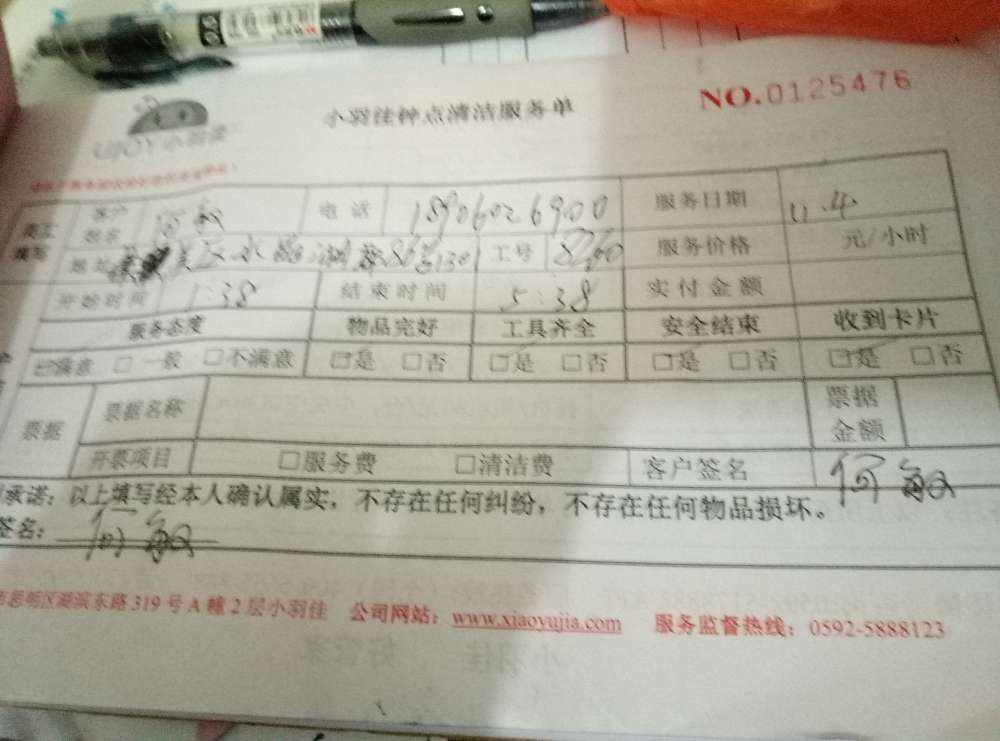 NO.0125476
UJOY小羽佳
小羽佳钟点清洁服务单
员工填写 客户姓名 何敏 电话 18906026900 服务日期 11.4
地址 工号 8260 服务价格 元/小时
开始时间 1:38 结束时间 5:38 实付金额
服务态度 物品完好 工具齐全 安全结束 收到卡片
□满意 □一般 □不满意 □是 □否 □是 □否 □是 □否 □是 □否
票据 票据名称 票据金额
开票项目 □服务费 □清洁费 客户签名 何敏
承诺:以上填写经本人确认属实,不存在任何纠纷,不存在任何物品损坏。
签名: 何敏
市思明区湖滨东路319号A幢2层小羽佳 公司网站:www.xiaoyujia.com 服务监督热线:0592-5888123